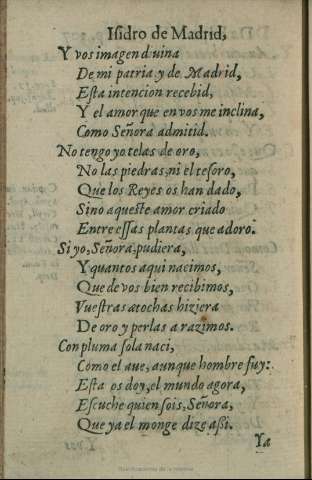 Isidro de Madrid,
Y vos imagen diuina
De mi patria y de Madrid,
Esta intencion recebid,
Y el amor que en vos me inclina,
Como Señora admitid.
No tengo yo telas de oro,
No las piedras, ni el tesoro,
Que los Reyes os han dado,
Sino aqueste amor criado
Entre essas plantas que adoro.
Si yo, Señora, pudiera,
Y quantos aqui nacimos,
Que de vos bien recibimos,
Vuestras atochas hiziera
De oro y perlas a razimos.
Con pluma sola naci,
Como el aue, aunque hombre fuy:
Esta os doy, el mundo agora,
Escuche quien sois, Señora,
Que ya el monge dize assi.
Ya